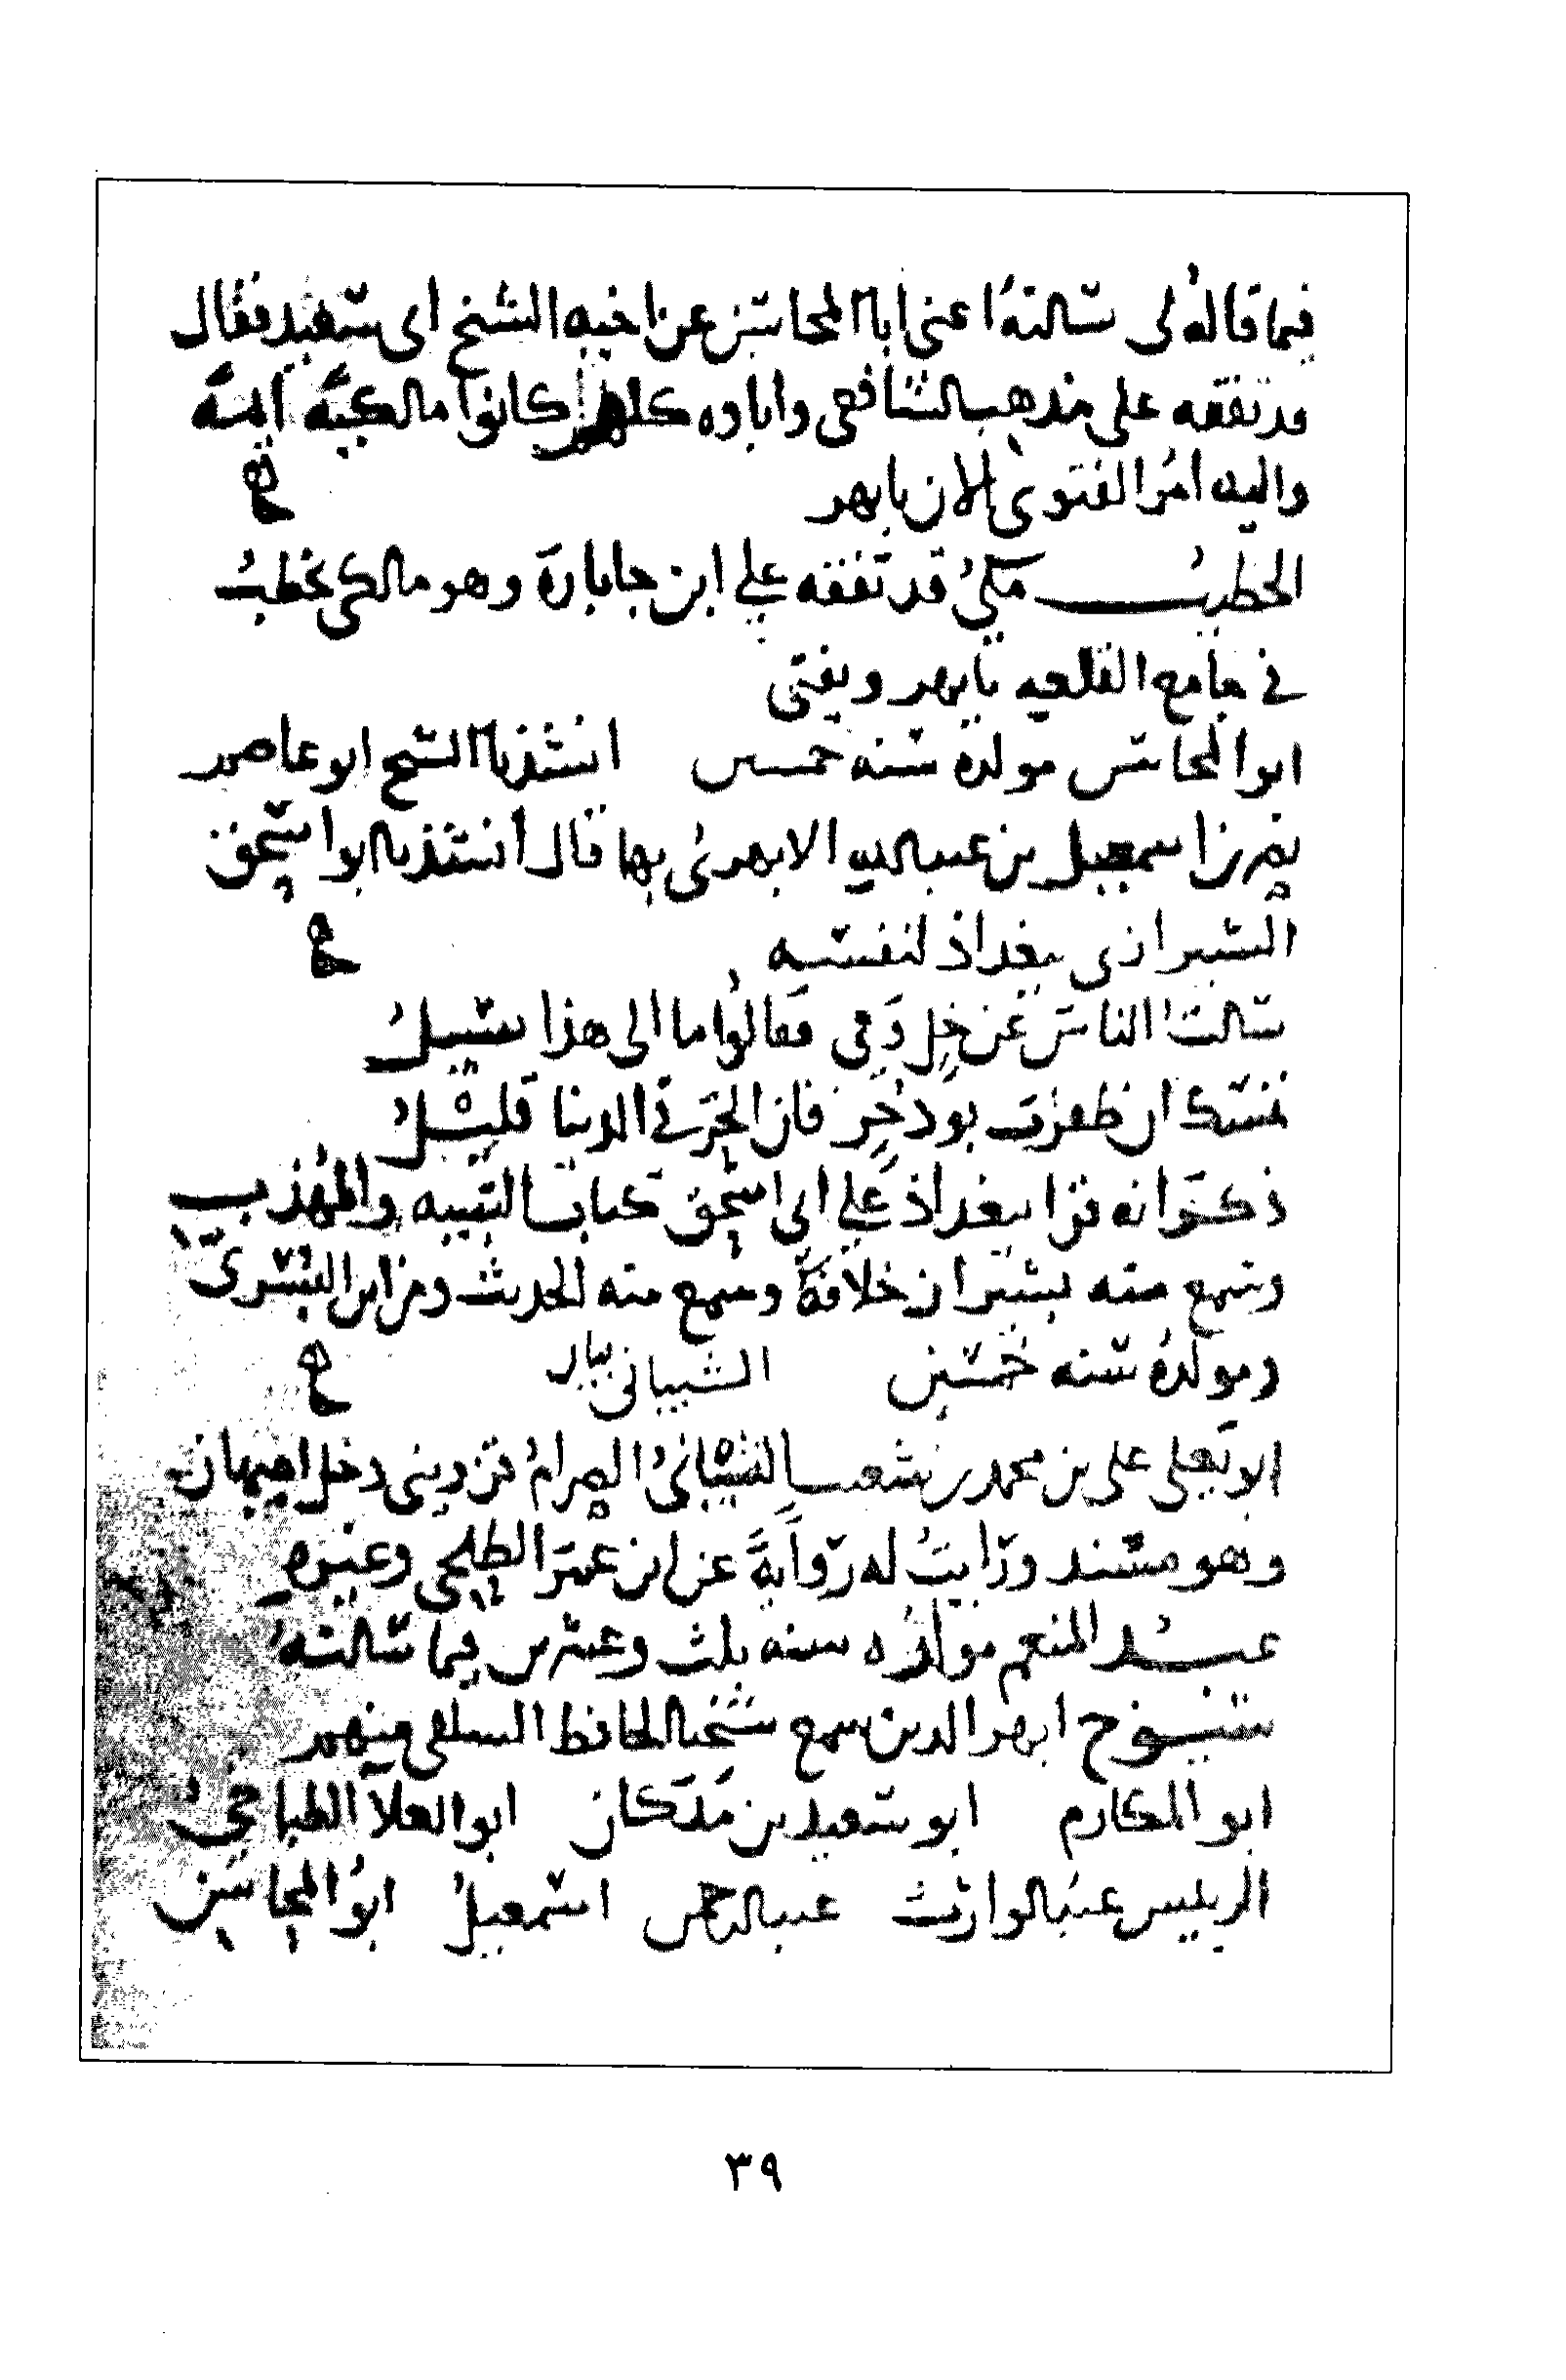 فيما قاله لي سالته اعني ابا المحاسن عن اخيه الشيخ ابي سعيد فقال
قد تفقه على مذهب الشافعي واباوه كلهم كانوا مالكية ايمة
واليه امر الفتوى الان بابهر
الخطيب مكي قد تفقه علي ابن جابارة وهو مالكي يخطب
في جامع القلعه بابهر ويفتي
ابو المحاسن مولده سنه خمس انشدنا الشيخ ابو عاصم
نصر بن اسمعيل بن عبد الله الابهري بها قال انشدنا ابو اسحق
الشيرازي ببغداذ لنفسه
سالت الناس عن خل وفي فقالوا ما الى هذا سبيل
تمسك ان ظفرت بود حر فان الحر في الدنيا قليل
ذكر انه قرا ببغداذ علي ابي اسحق كتاب التنبيه والمهذب
وسمع منه بشيراز خلافة وسمع منه الحديث ومن ابن البسري
ومولده سنه خمسين الشيباني
ابو يعلى علي بن محمد بن شعيب الشيباني الصرام دخل اصبهان
وهو مسند ورايت له رواية عن ابن عمر الطلحي وغيره
عبد المنعم مولده سنه ثلث وعشرين فيما سالته
شيوخ ابهر الدين سمع شيخنا الحافظ السلفي منهم
ابو المكارم ابو سعيد بن مدكان ابو العلا الطباخي
الرييس عبد الوارث عبد الرحمن اسمعيل ابو المحاسن
٣٩